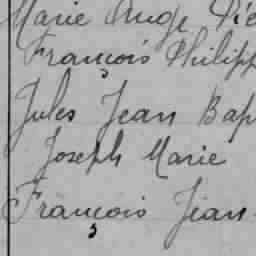 Marie Ange Pie
François Philipp
Jules Jean Bap
Joseph Marie
François Jean